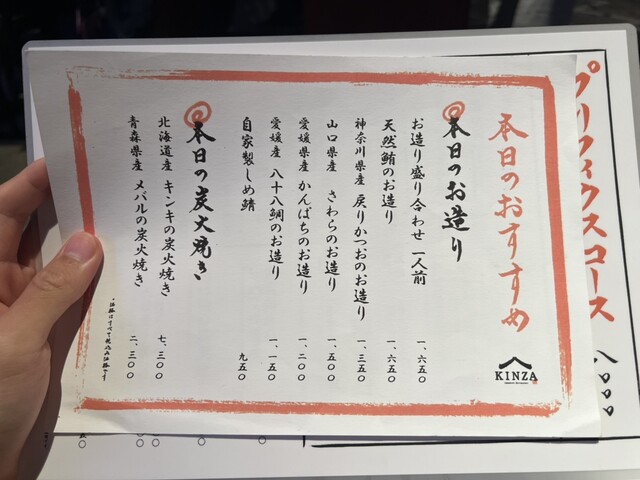 本日のおすすめ
本日のお造り
お造り盛り合わせ 一人前 一、六五〇
天然鮪のお造り 一、六五〇
神奈川県産 戻りかつおのお造り 一、三五〇
山口県産 さわらのお造り 一、五〇〇
愛媛県産 かんぱちのお造り 一、二〇〇
愛媛産 八十八鯛のお造り 一、一五〇
自家製しめ鯖 九五〇
本日の炭火焼き
北海道産 キンキの炭火焼き 七、三〇〇
青森県産 メバルの炭火焼き 二、三〇〇
KINZA
プリフィクスコース